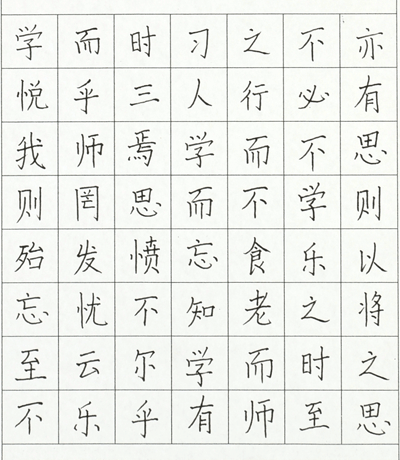 学而时习之不亦
悦乎三人行必有
我师焉学而不思
则罔思而不学则
殆发愤忘食乐以
忘忧不知老之将
至云尔学而时之
不乐乎有师至思